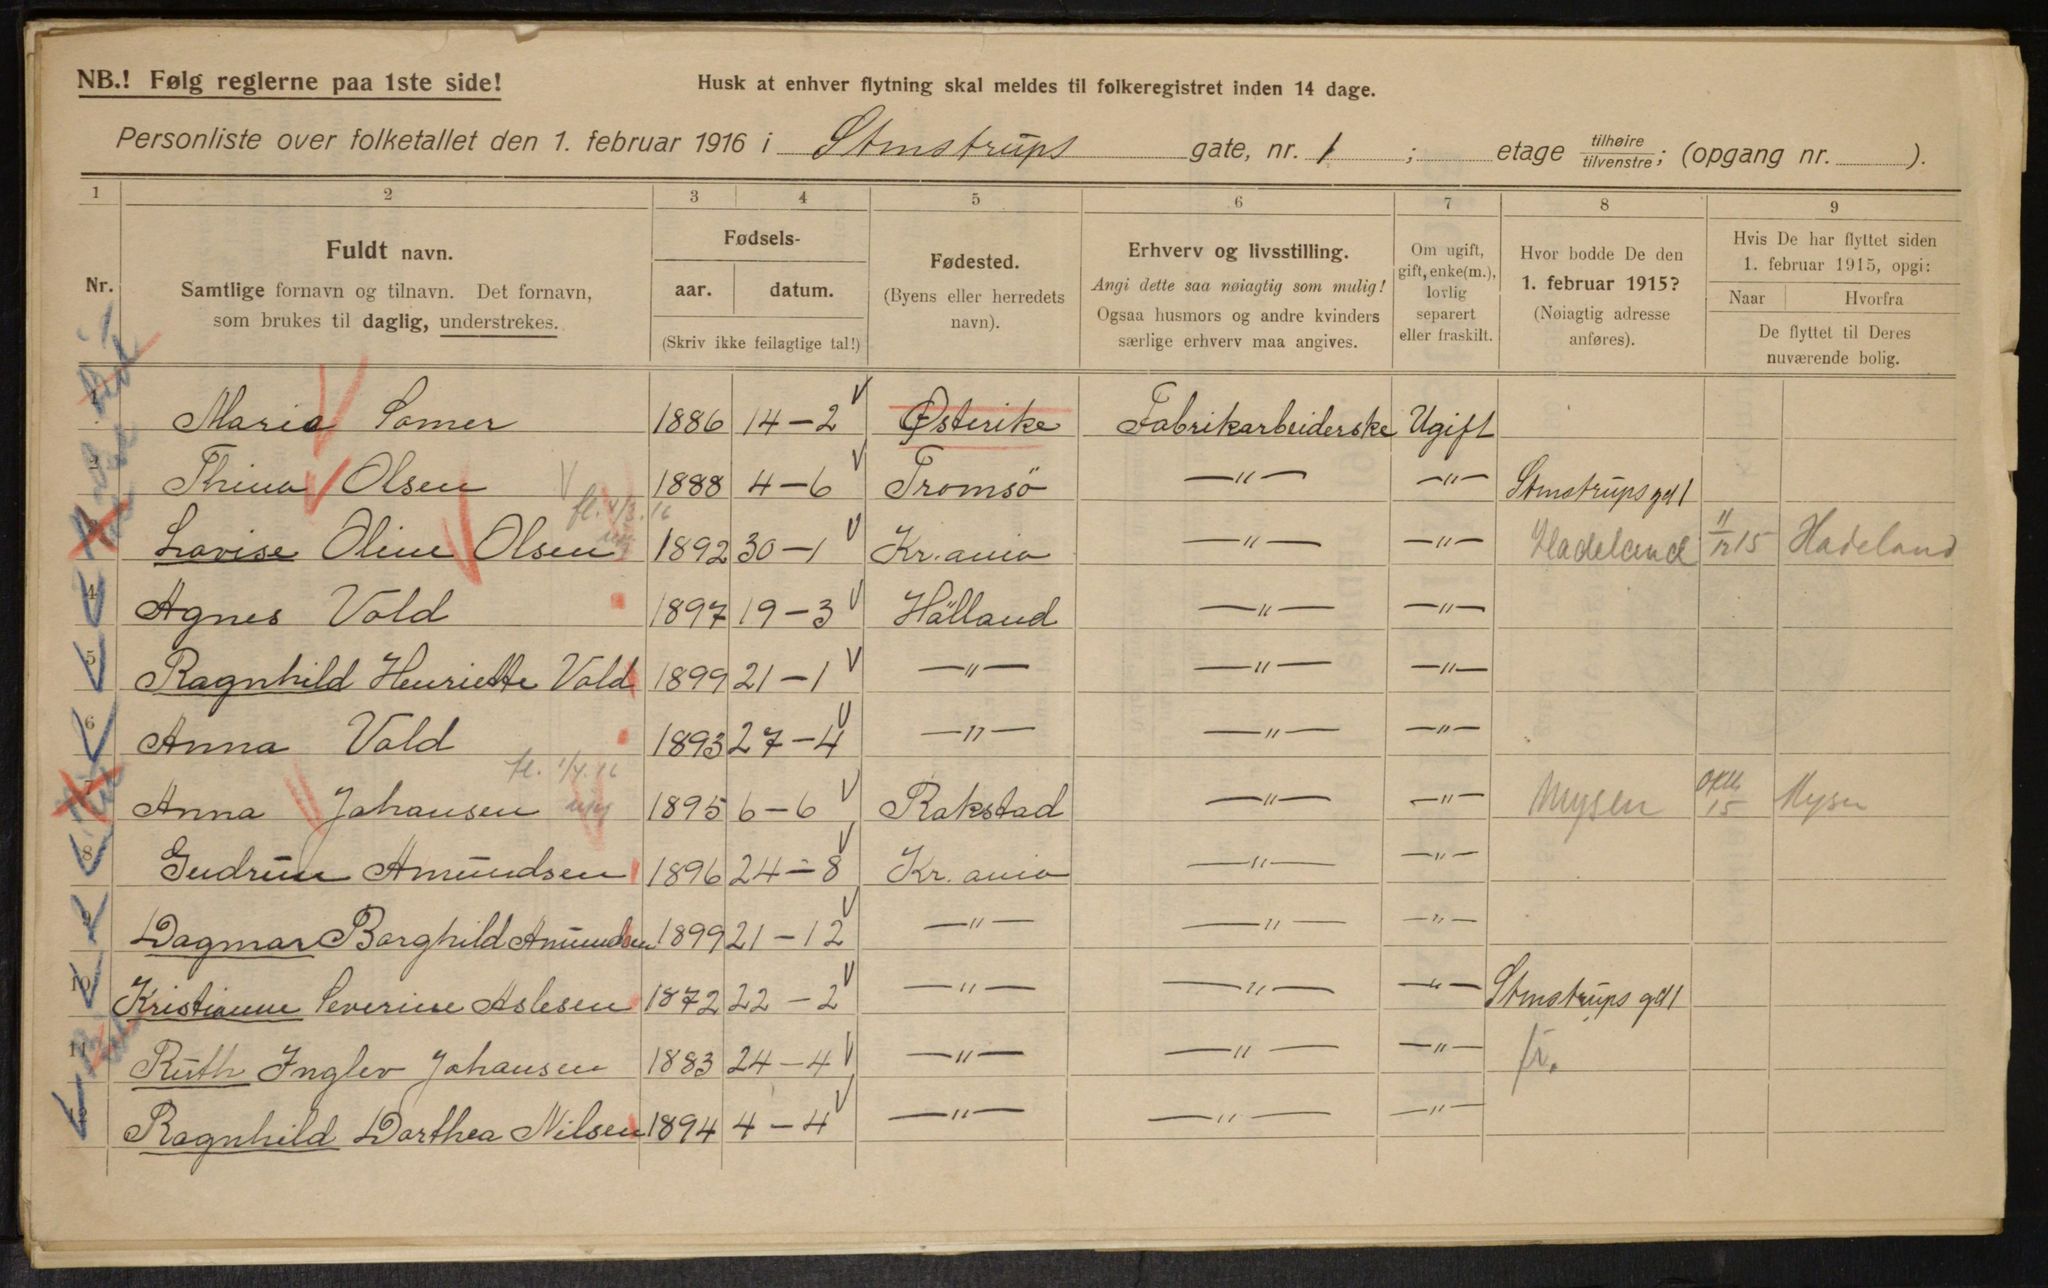 NB.! Følg reglerne paa 1ste side!
Husk at enhver flytning skal meldes til folkeregistret inden 14 dage.
Personliste over folketallet den 1. februar 1916 i Stenstrups gate, nr. 1 ; etage tilhøire tilvenstre; (opgang nr. ).
1 2 3 4 5 6 7 8 9
Nr.
Fuldt navn.
Samtlige fornavn og tilnavn. Det fornavn,
som brukes til daglig, understrekes.
Fødsels-
aar. datum.
(Skriv ikke feilagtige tal!)
Fødested.
(Byens eller herredets
navn).
Erhverv og livsstilling.
Angi dette saa nøiagtig som mulig!
Ogsaa husmors og andre kvinders
særlige erhverv maa angives.
Om ugift,
gift, enke(m.),
lovlig
separert
eller fraskilt.
Hvor bodde De den
1. februar 1915?
(Nøiagtig adresse
anføres).
Hvis De har flyttet siden
1. februar 1915, opgi:
Naar Hvorfra
De flyttet til Deres
nuværende bolig.
1 Maria Somer 1886 14-2 Østerike Fabrikarbeiderske Ugift
2 Thina Olsen 1888 4-6 Tromsö —"— —"— Stenstrups gd 1
fl. 1/3.16
3 Lovise Oline Olsen 1892 30-1 Kr.ania —"— —"— Hadeland 11/12 15 Hadeland
4 Agnes Vold 1897 19-3 Hölland —"— —"—
5 Ragnhild Henriette Vold 1899 21-1 —"— —"— —"—
6 Anna Vold 1893 27-4 —"— —"— —"—
fl. 1/4.16
7 Anna Johansen 1895 6-6 Rakstad —"— —"— Mysen Okt. 15 Mysen
8 Gudrun Amundsen 1896 24-8 Kr.ania —"— —"—
9 Dagmar Borghild Amundsen 1899 21-12 —"— —"— —"—
10 Kristianne Severine Aslesen 1872 22-2 —"— —"— —"— Stenstrups gd 1
11 Ruth Inglev Johansen 1883 24-4 —"— —"— —"— fr.
Ragnhild Dorthea Nilsen 1894 4-4 —"— —"— —"—